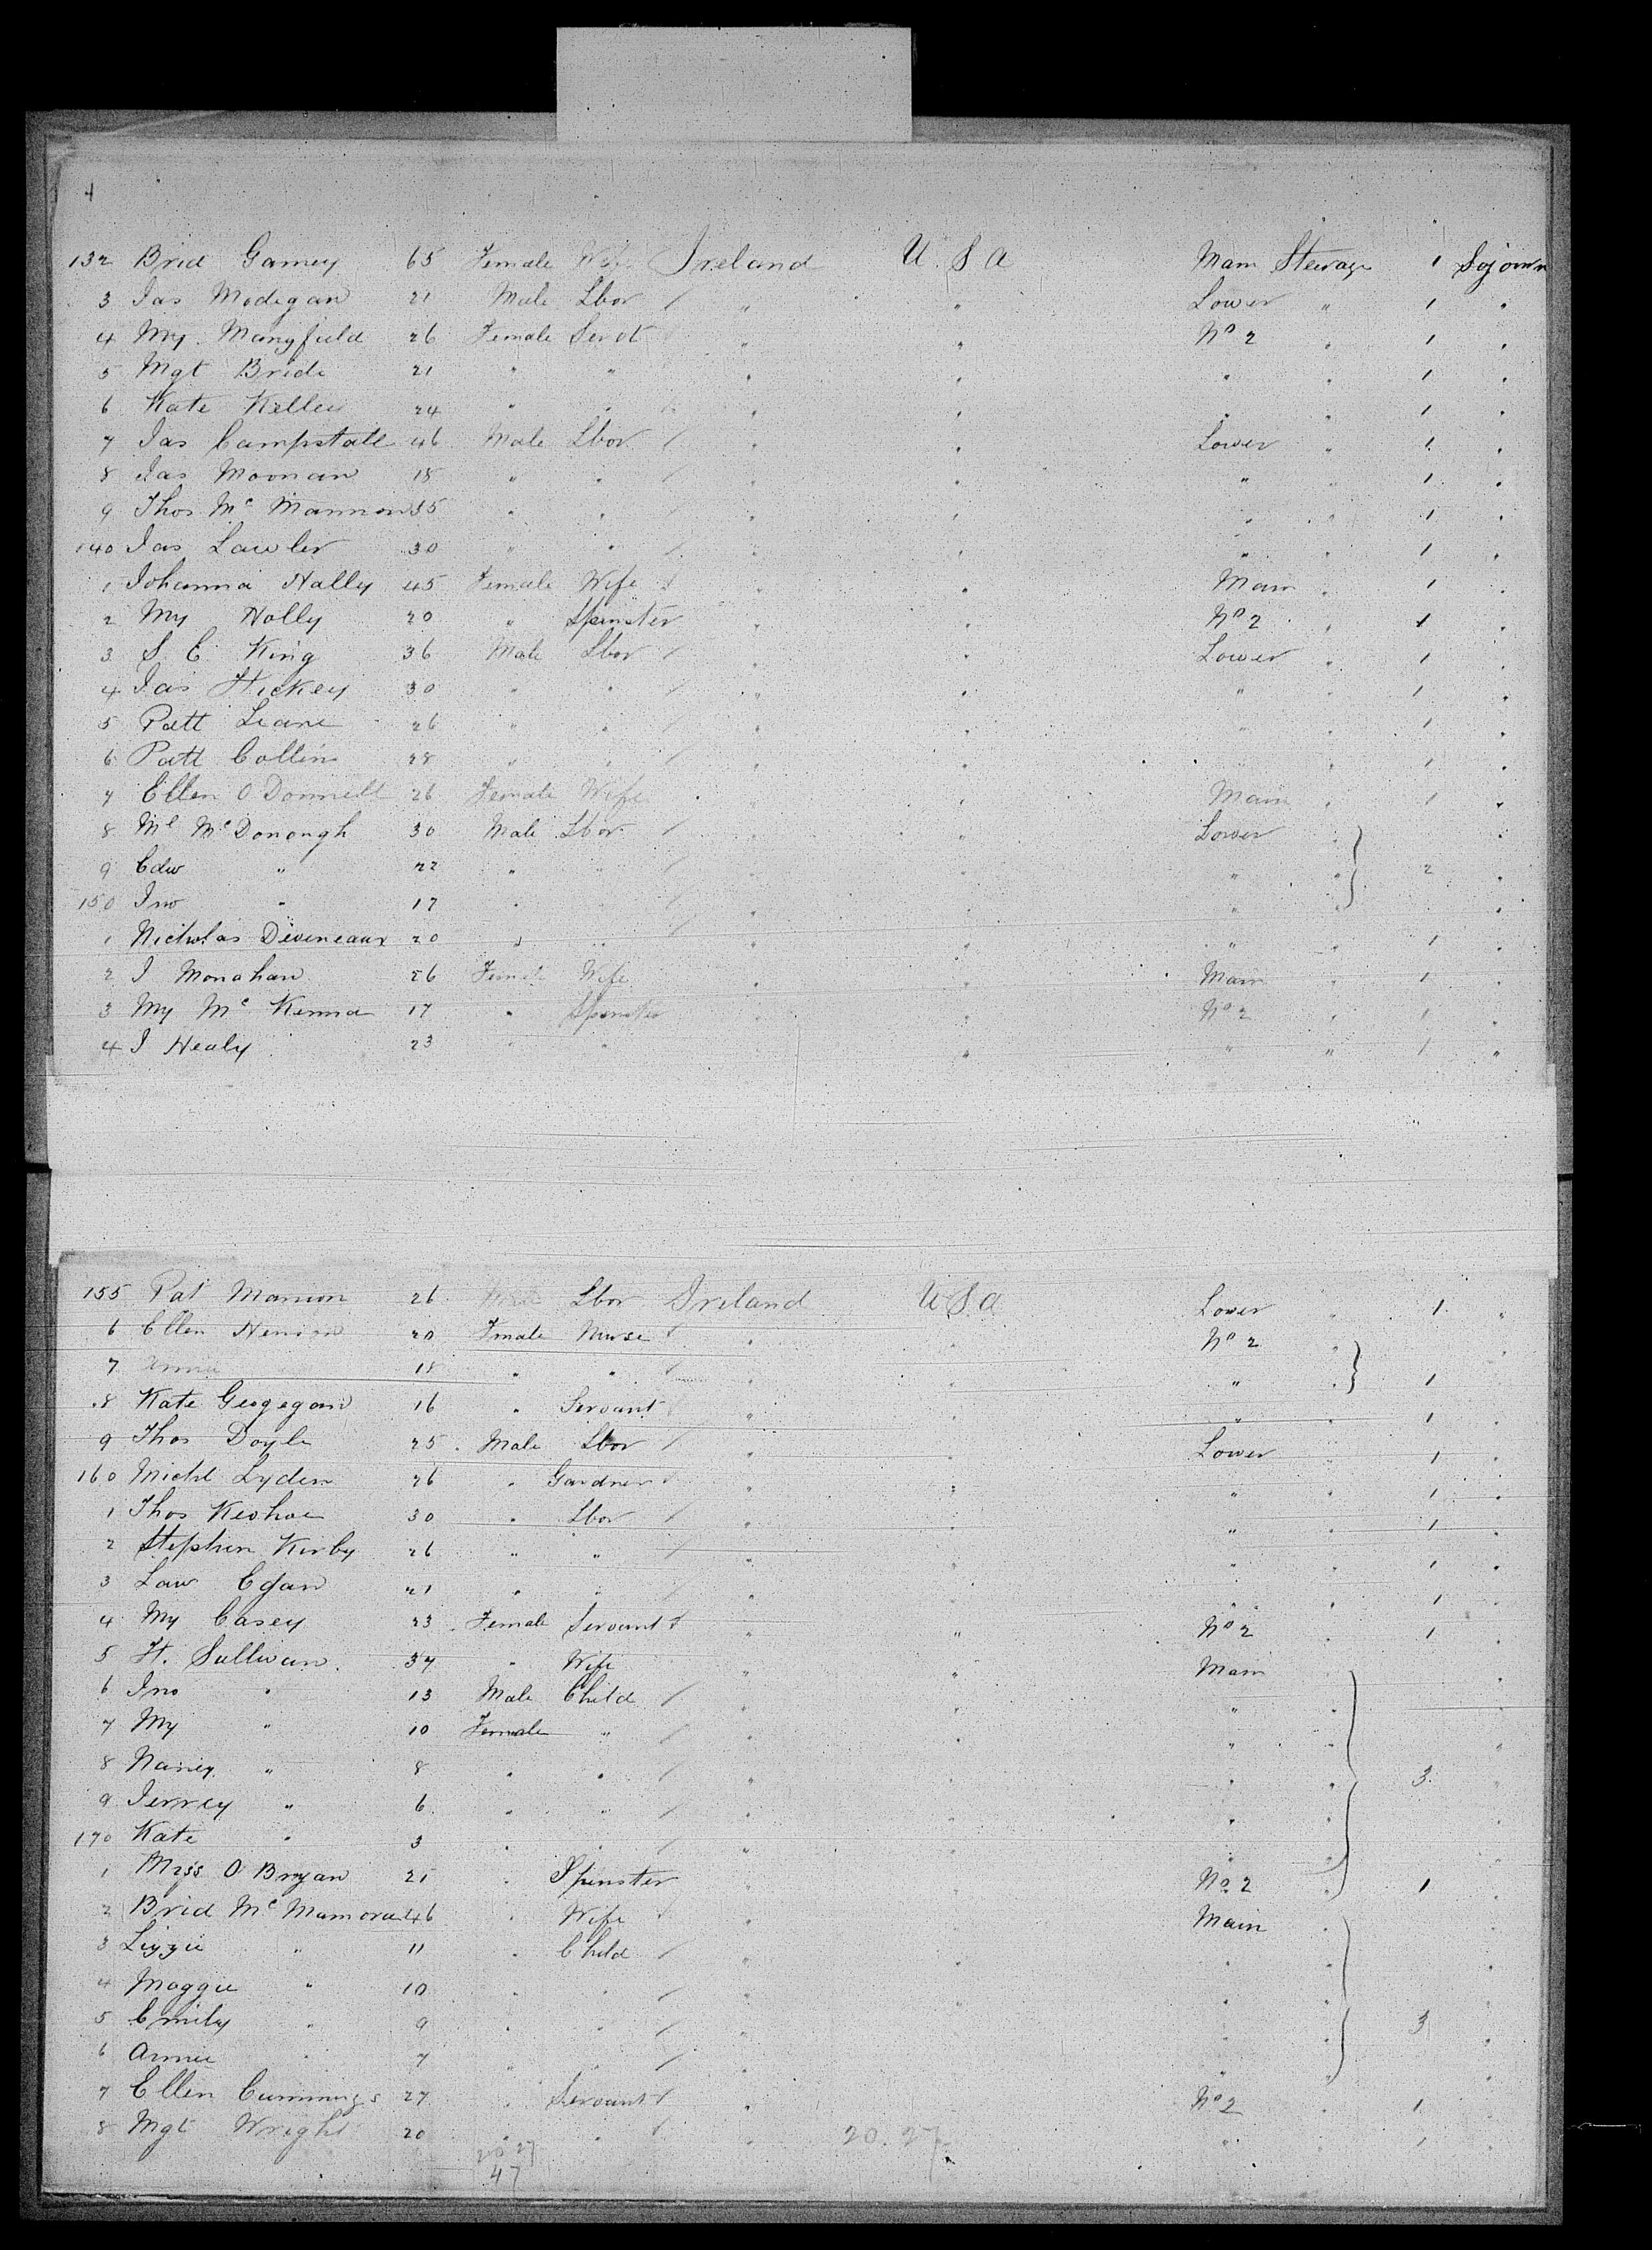 4
132 Brid Gamey 65 Female Wife Ireland U.S.A Main Steerage 1 Sojourn
3 Jas Madigan 21 Male Lbor / " " Lower " 1 "
4 My. Mangfield 26 Female Servt " " No 2 " 1 "
5 Mgt Bride 21 " " " " " " 1 "
6 Kate Kelley 24 " " " " " " 1 "
7 Jas Campstall 46 Male Lbor / " " Lower " 1 "
8 Jas Moonan 18 " " / " " " " 1 "
9 Thos Mc Mannon 35 " " / " " " " 1 "
140 Jas Lawler 30 " " / " " " " 1 "
1 Johanna Nally 45 Female Wife " " Main " 1 "
2 My Nolly 20 " Spinster " " No 2 " 1 "
3 S E King 36 Male Lbor / " " Lower " 1 "
4 Jas Hickey 30 " " / " " " " 1 "
5 Patt Leane 26 " " / " " " " 1 "
6 Patt Collins 28 " " / " " " " 1 "
7 Ellen O Donnell 26 Female Wife " " Main " 1 "
8 Ml McDonough 30 Male Lbor / " " Lower " "
9 Edw " 22 " " / " " " " 2 "
150 Jno " 17 " " / " " " " "
1 Nicholas Deveneaux 20 " " / " " " " 1 "
2 J Monahan 26 Female Wife " " Main " 1 "
3 My Mc Kenna 17 " Spinster " " No 2 " 1 "
4 J Healy 23 " " " " " " 1 "
155 Pat Manion 26 Male Lbor Ireland U S A Lower " 1 "
6 Ellen 20 Female Nurse " " No 2 " "
7 Annie 18 " " " " " " 1 "
8 Kate Geogegan 16 " Servant " " " " 1 "
9 Thos Doyle 25 Male Lbor / " " Lower " 1 "
160 Michl Lyden 26 " Gardner " " " " 1 "
1 Thos Keohoe 30 " Lbor / " " " " 1 "
2 Stephen Kirby 26 " " / " " " " 1 "
3 Law Egan 21 " " / " " " " 1 "
4 My Casey 23 Female Servant " " No 2 " 1 "
5 H. Sullivan 37 " Wife " " Main " "
6 Jno " 13 Male Child / " " " " "
7 My " 10 Female " / " " " " "
8 Nancy " 8 " " / " " " " 3 "
9 Jerrey " 6 " " / " " " " "
170 Kate " 3 " " / " " " " "
1 Miss O Bryan 21 " Spinster " " No 2 " 1 "
2 Brid Mc Mamora 46 " Wife " " Main " "
3 Lizzie " 11 " Child / " " " " "
4 Maggie " 10 " " / " " " " "
5 Emily " 9 " " / " " " " 3 "
6 Annie " 7 " " / " " " " "
7 Ellen Cummings 27 " Servant " No 2 " 1 "
8 Mgt Wright 20 " " " " " 1 "
20 27 20.27
47